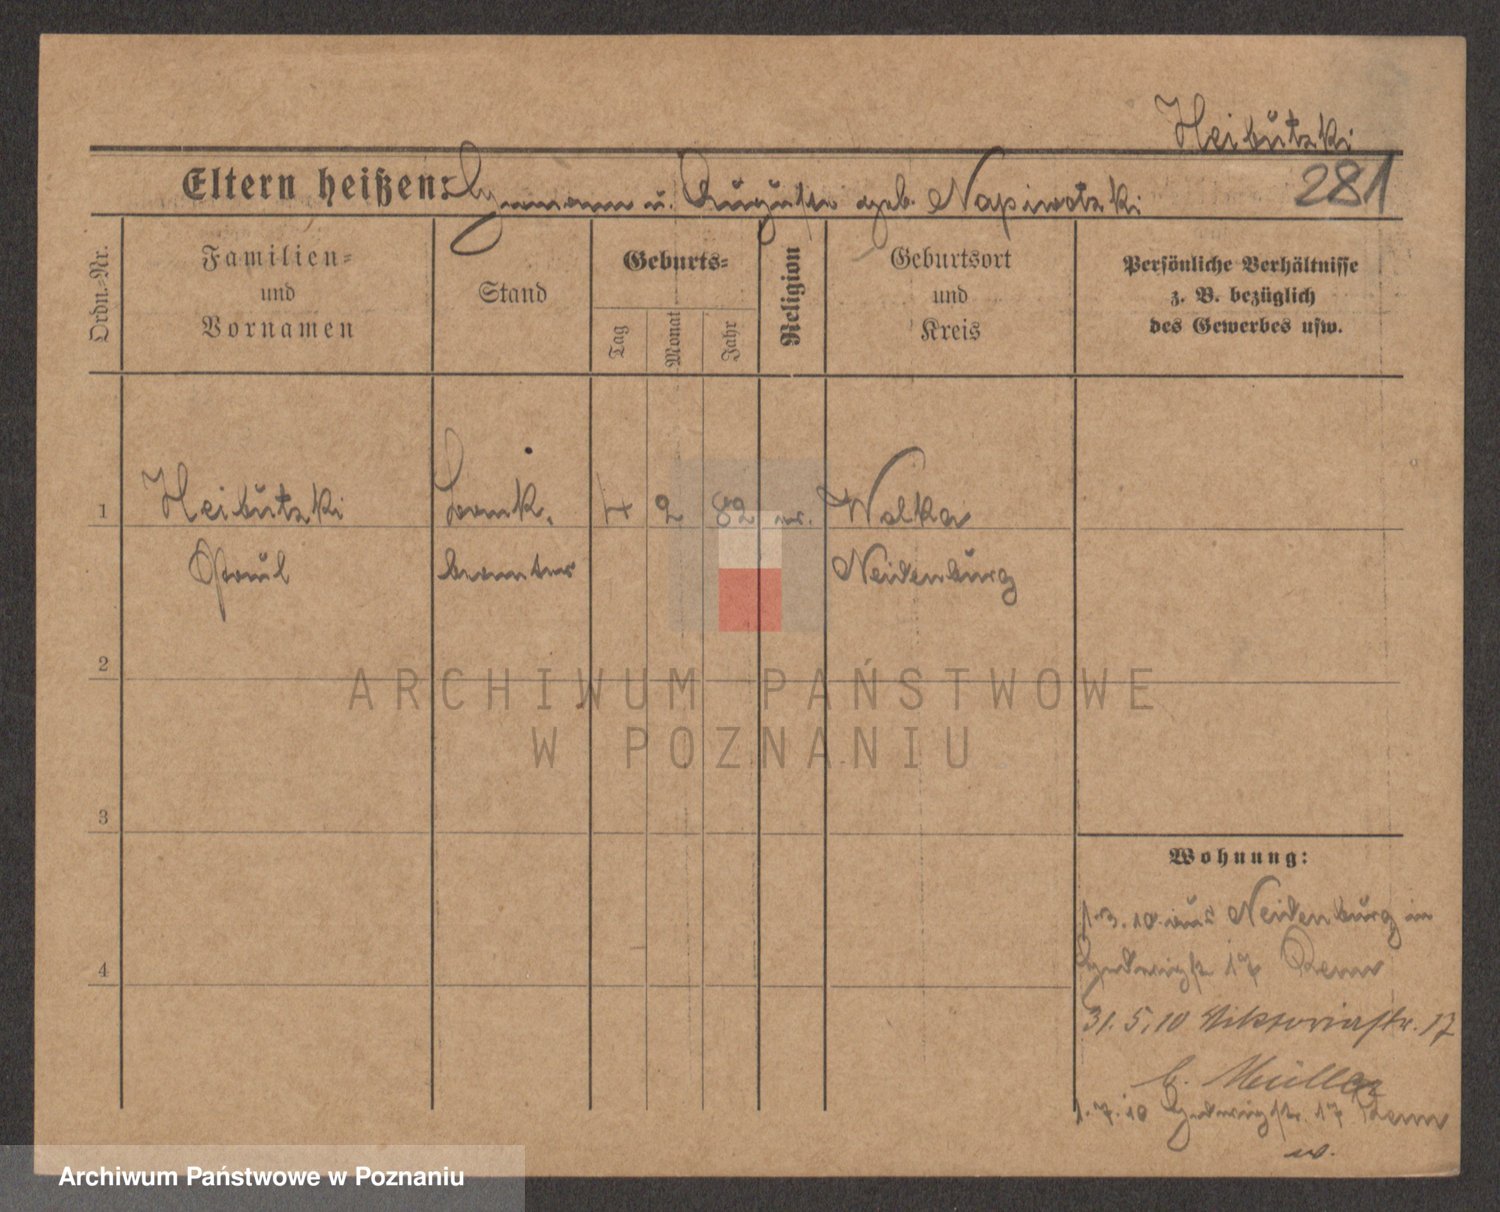 Heibutzki
Eltern heißen: Hermann u. Auguste geb. Napiwotzki
281
Ordn.-Nr.
Familien-
und
Vornamen
Stand
Geburts-
Tag
Monat
Jahr
Religion
Geburtsort
und
Kreis
Persönliche Verhältnisse
z. B. bezüglich
des Gewerbes usw.
1
Heibutzki
Bank.
4 2 82
Wolka
Paul
beamter
Neidenburg
2
3
4
Wohnung:
1.3.10 aus Neidenburg in
17
31.5.10 Viktoriastr. 17
b. Müller
1.7.10 17
ARCHIWUM PAŃSTWOWE
W POZNANIU
Archiwum Państwowe w Poznaniu